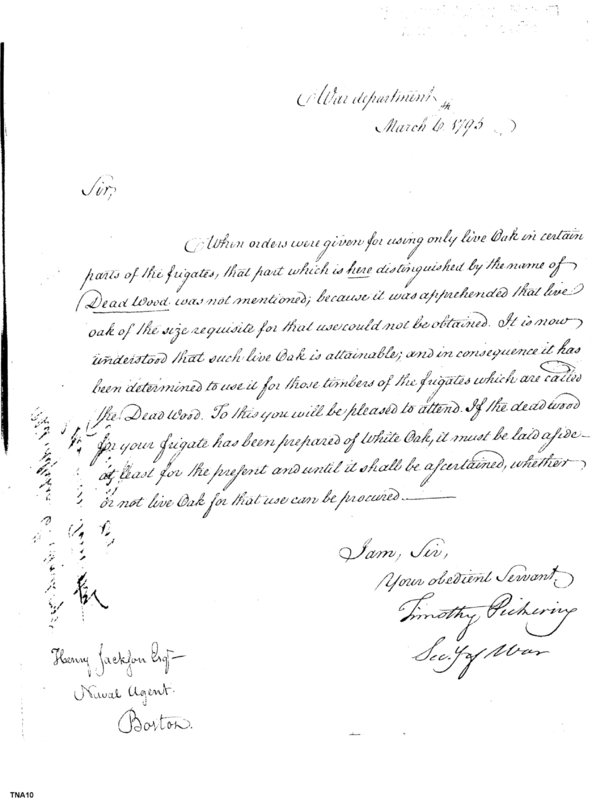 War department
March 6th 1795
Sir,
When orders were given for using only live Oak in certain
parts of the frigates, that part which is here distinguished by the name of
Dead Wood was not mentioned; because it was apprehended that live
oak of the size requisite for that use could not be obtained. It is now
understood that such live Oak is attainable; and in consequence it has
been determined to use it for those timbers of the frigates which are called
the Dead Wood. To this you will be pleased to attend. If the dead wood
for your frigate has been prepared of White Oak, it must be laid aside
at least for the present and until it shall be ascertained, whether
or not live Oak for that use can be procured.
I am, Sir,
Your obedient Servant,
Timothy Pickering
Sec.y of War
Henry Jackson Esqr
Naval Agent.
Boston.
TNA10